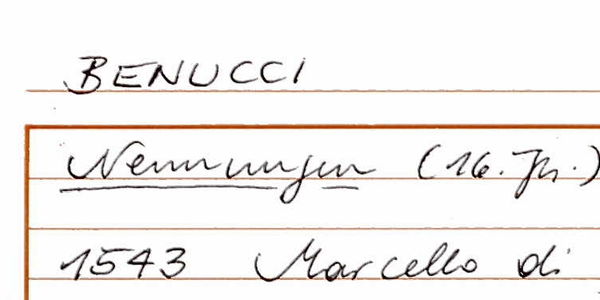 BENUCCI
Nennungen (16. Jh.)
1543 Marcello di